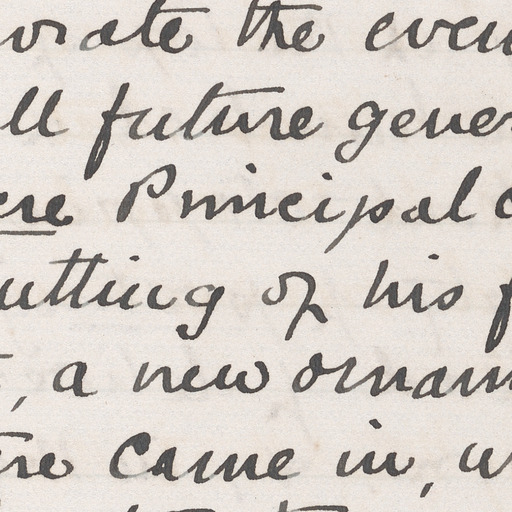 orate the even
ll future gener
ere Principal
utting of his f
, a new ornam
re came in, w